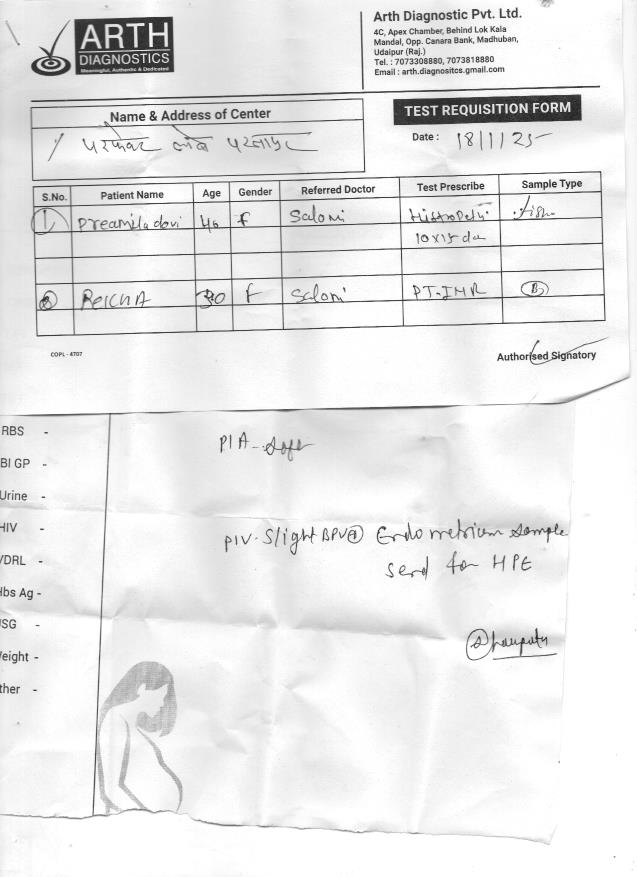 ARTH
DIAGNOSTICS
Meaningful, Authentic & Dedicated
Arth Diagnostic Pvt. Ltd.
4C, Apex Chamber, Behind Lok Kala
Mandal, Opp. Canara Bank, Madhuban,
Udaipur (Raj.)
Tel. : 7073308880, 7073818880
Email : arth.diagnositcs.gmail.com
Name & Address of Center
TEST REQUISITION FORM
Date : 18/1/25
S.No. Patient Name Age Gender Referred Doctor Test Prescribe Sample Type
1 Preamila devi 40 f Saloni
2 30 f Saloni PT-INR B
COPL - 4707
Authorised Signatory
RBS -
BI GP -
Urine -
HIV -
VDRL -
Hbs Ag -
USG -
Weight -
ther -
P/A - Soft
P/V - Slight BPV Endometrium sample
send for HPE